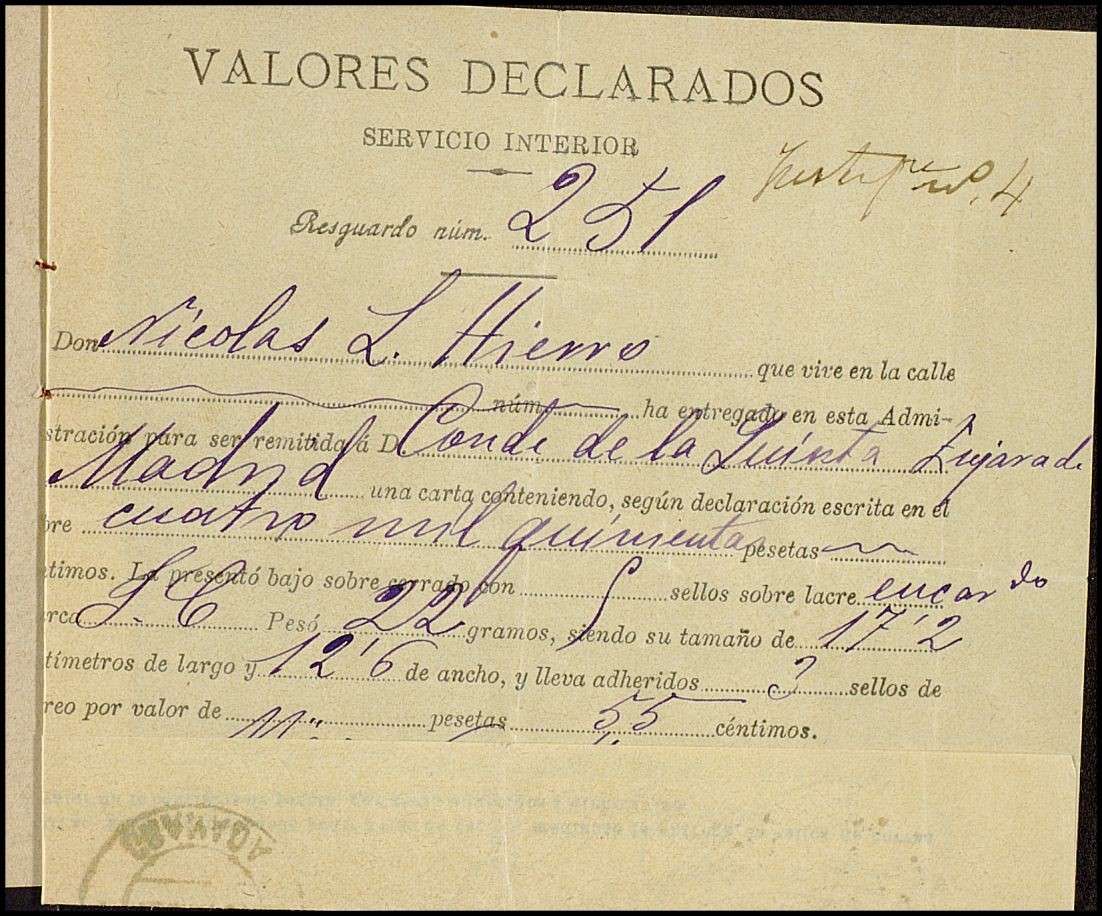 VALORES DECLARADOS
SERVICIO INTERIOR
Justifte no. 4
Resguardo núm. 251
Don Nicolas L. Hierro que vive en la calle
núm. ha entregado en esta Admi-
stración para ser remitida á D Conde de la Quinta Enjarada
Madrid una carta conteniendo, según declaración escrita en el
bre cuatro mil quinientas pesetas
ntimos. La presentó bajo sobre cerrado con 5 sellos sobre lacre encarndo
arca L. C Pesó 22 gramos, siendo su tamaño de 17'2
tímetros de largo y 12'6 de ancho, y lleva adheridos 3 sellos de
reo por valor de pesetas 55 céntimos.